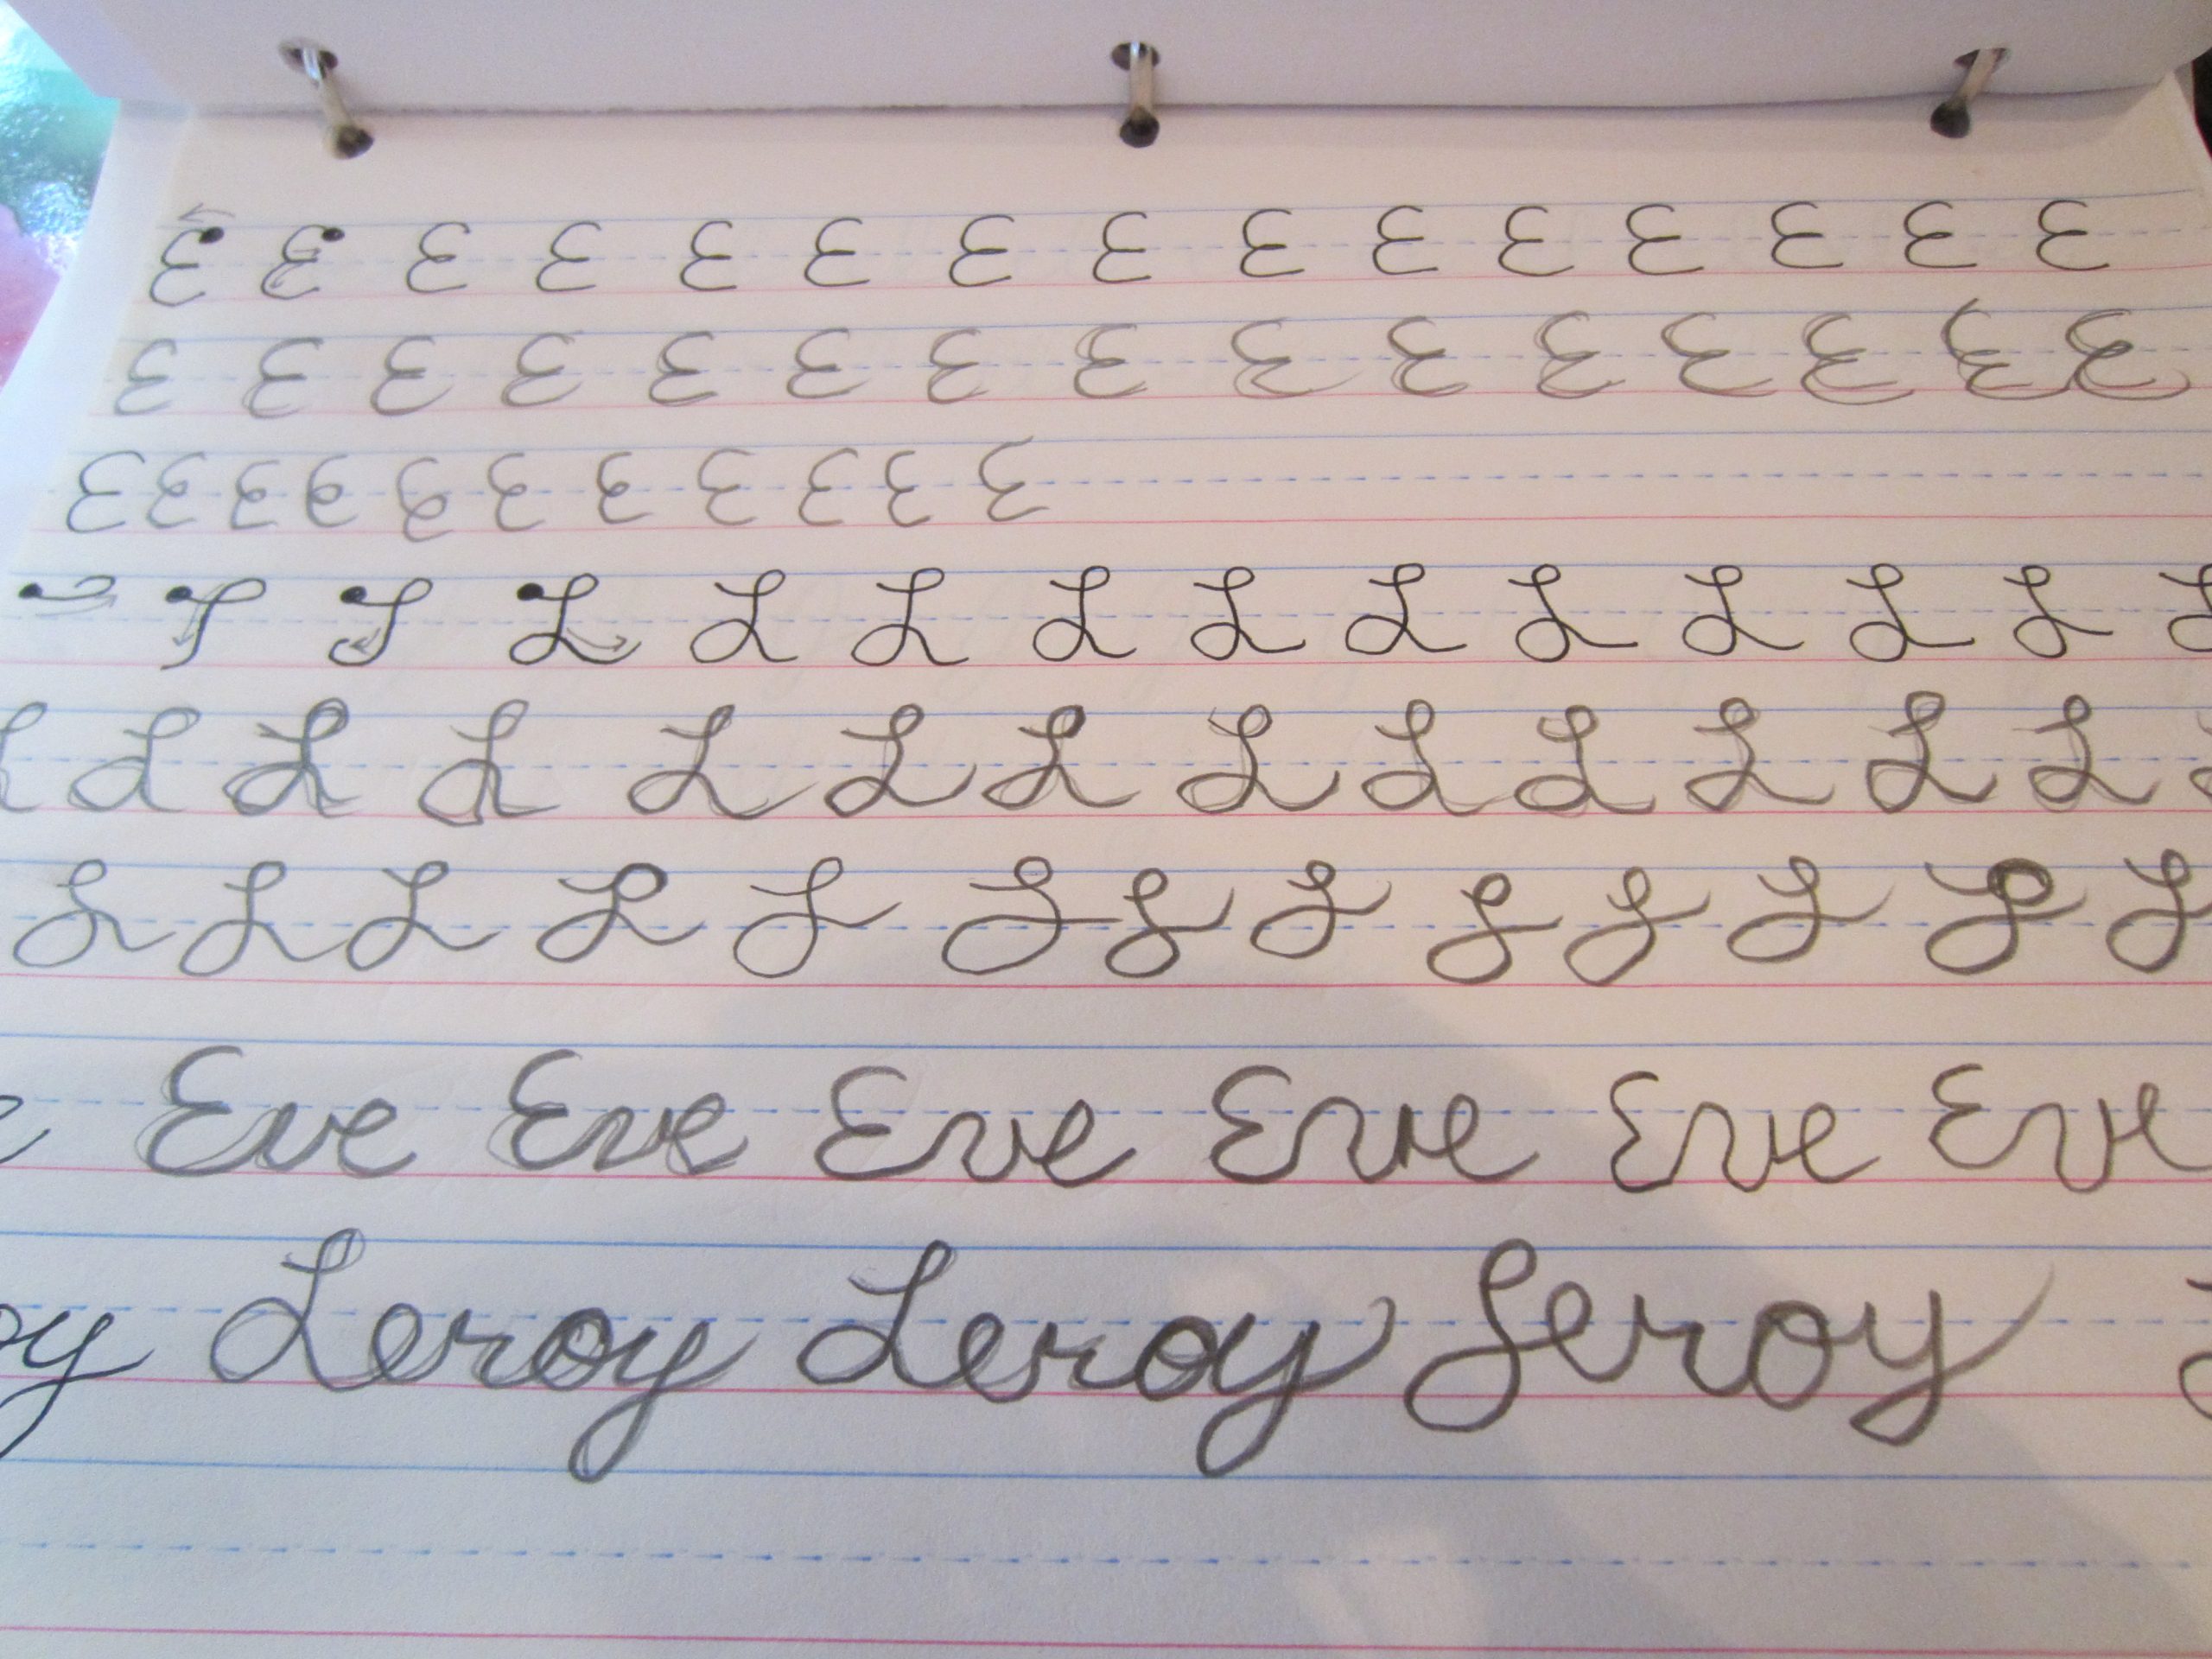 E E E E E E E E E E E E E E E
E E E E E E E E E E E E E E E
E E E E E E E E E E E
L L L L L L L L L L
L L L L L L L L L L L L
L L L L L L L L L L L L L
Eve Eve Eve Eve Eve Eve
Leroy Leroy Leroy